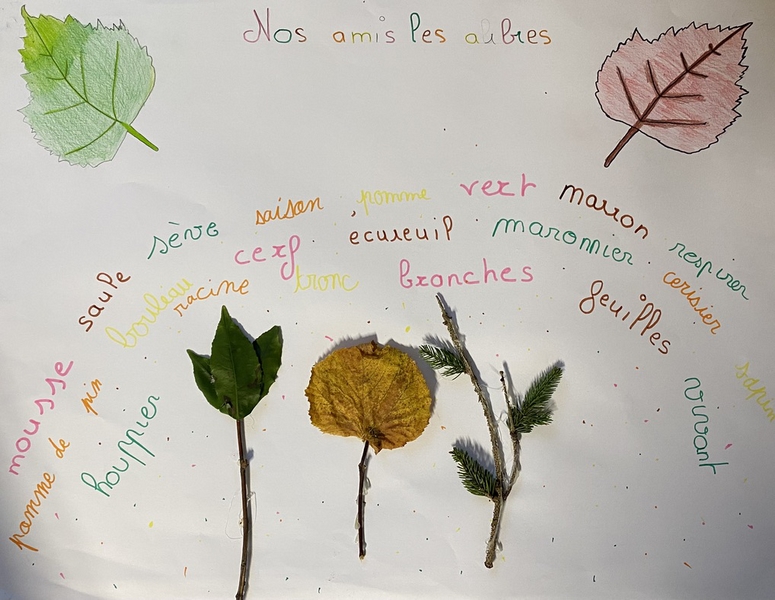 Nos amis les arbres
saison
pomme
vert
marron
sève
écureuil
maronnier
respirer
cerf
saule
bouleau
racine
tronc
branches
cerisier
feuilles
mousse
pomme de pin
houppier
vivant
sapin